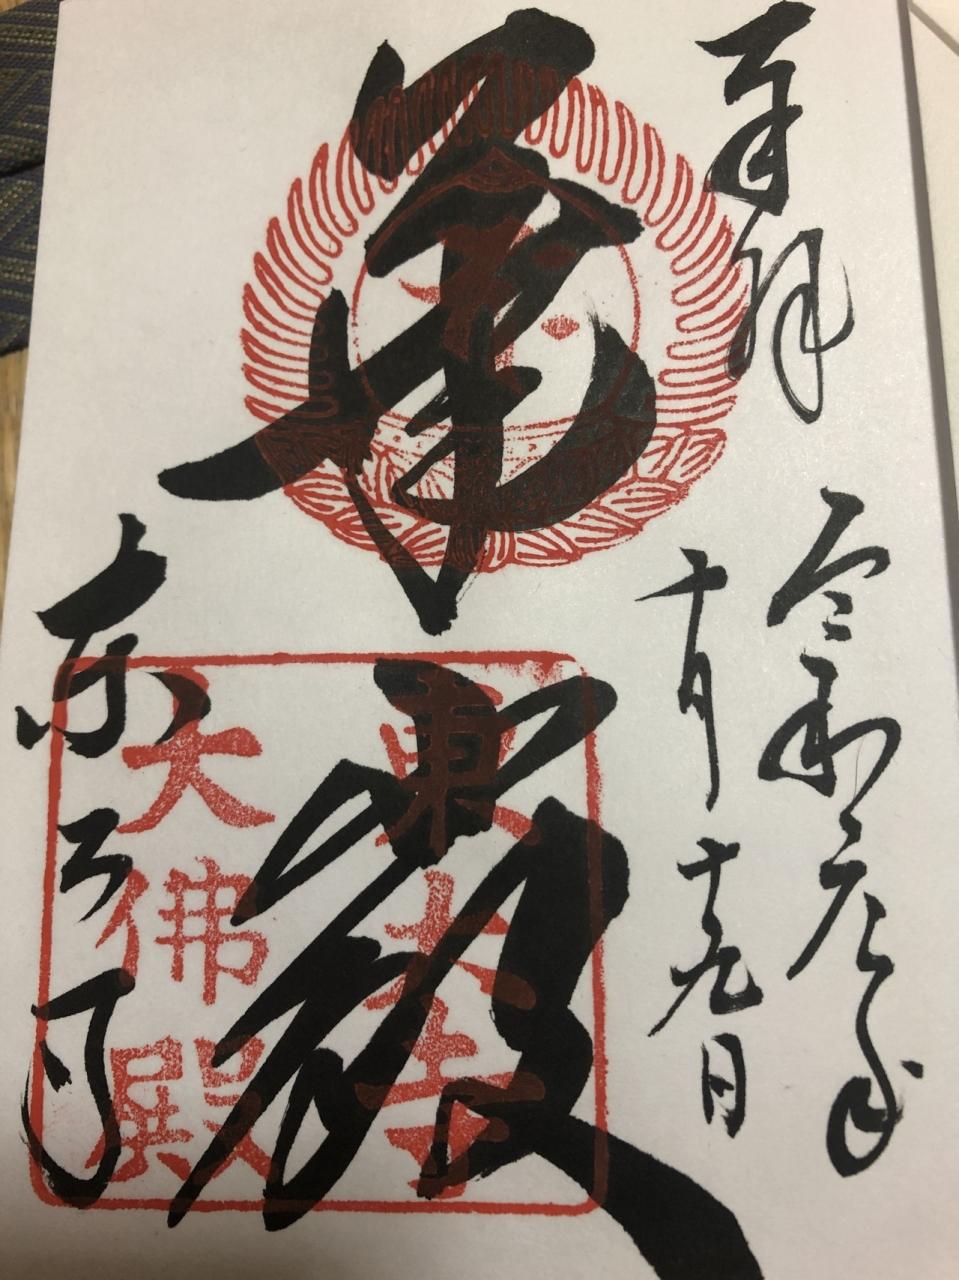 奉拝
令和元年
十月十九日
華厳
東大寺
東大寺
大佛殿